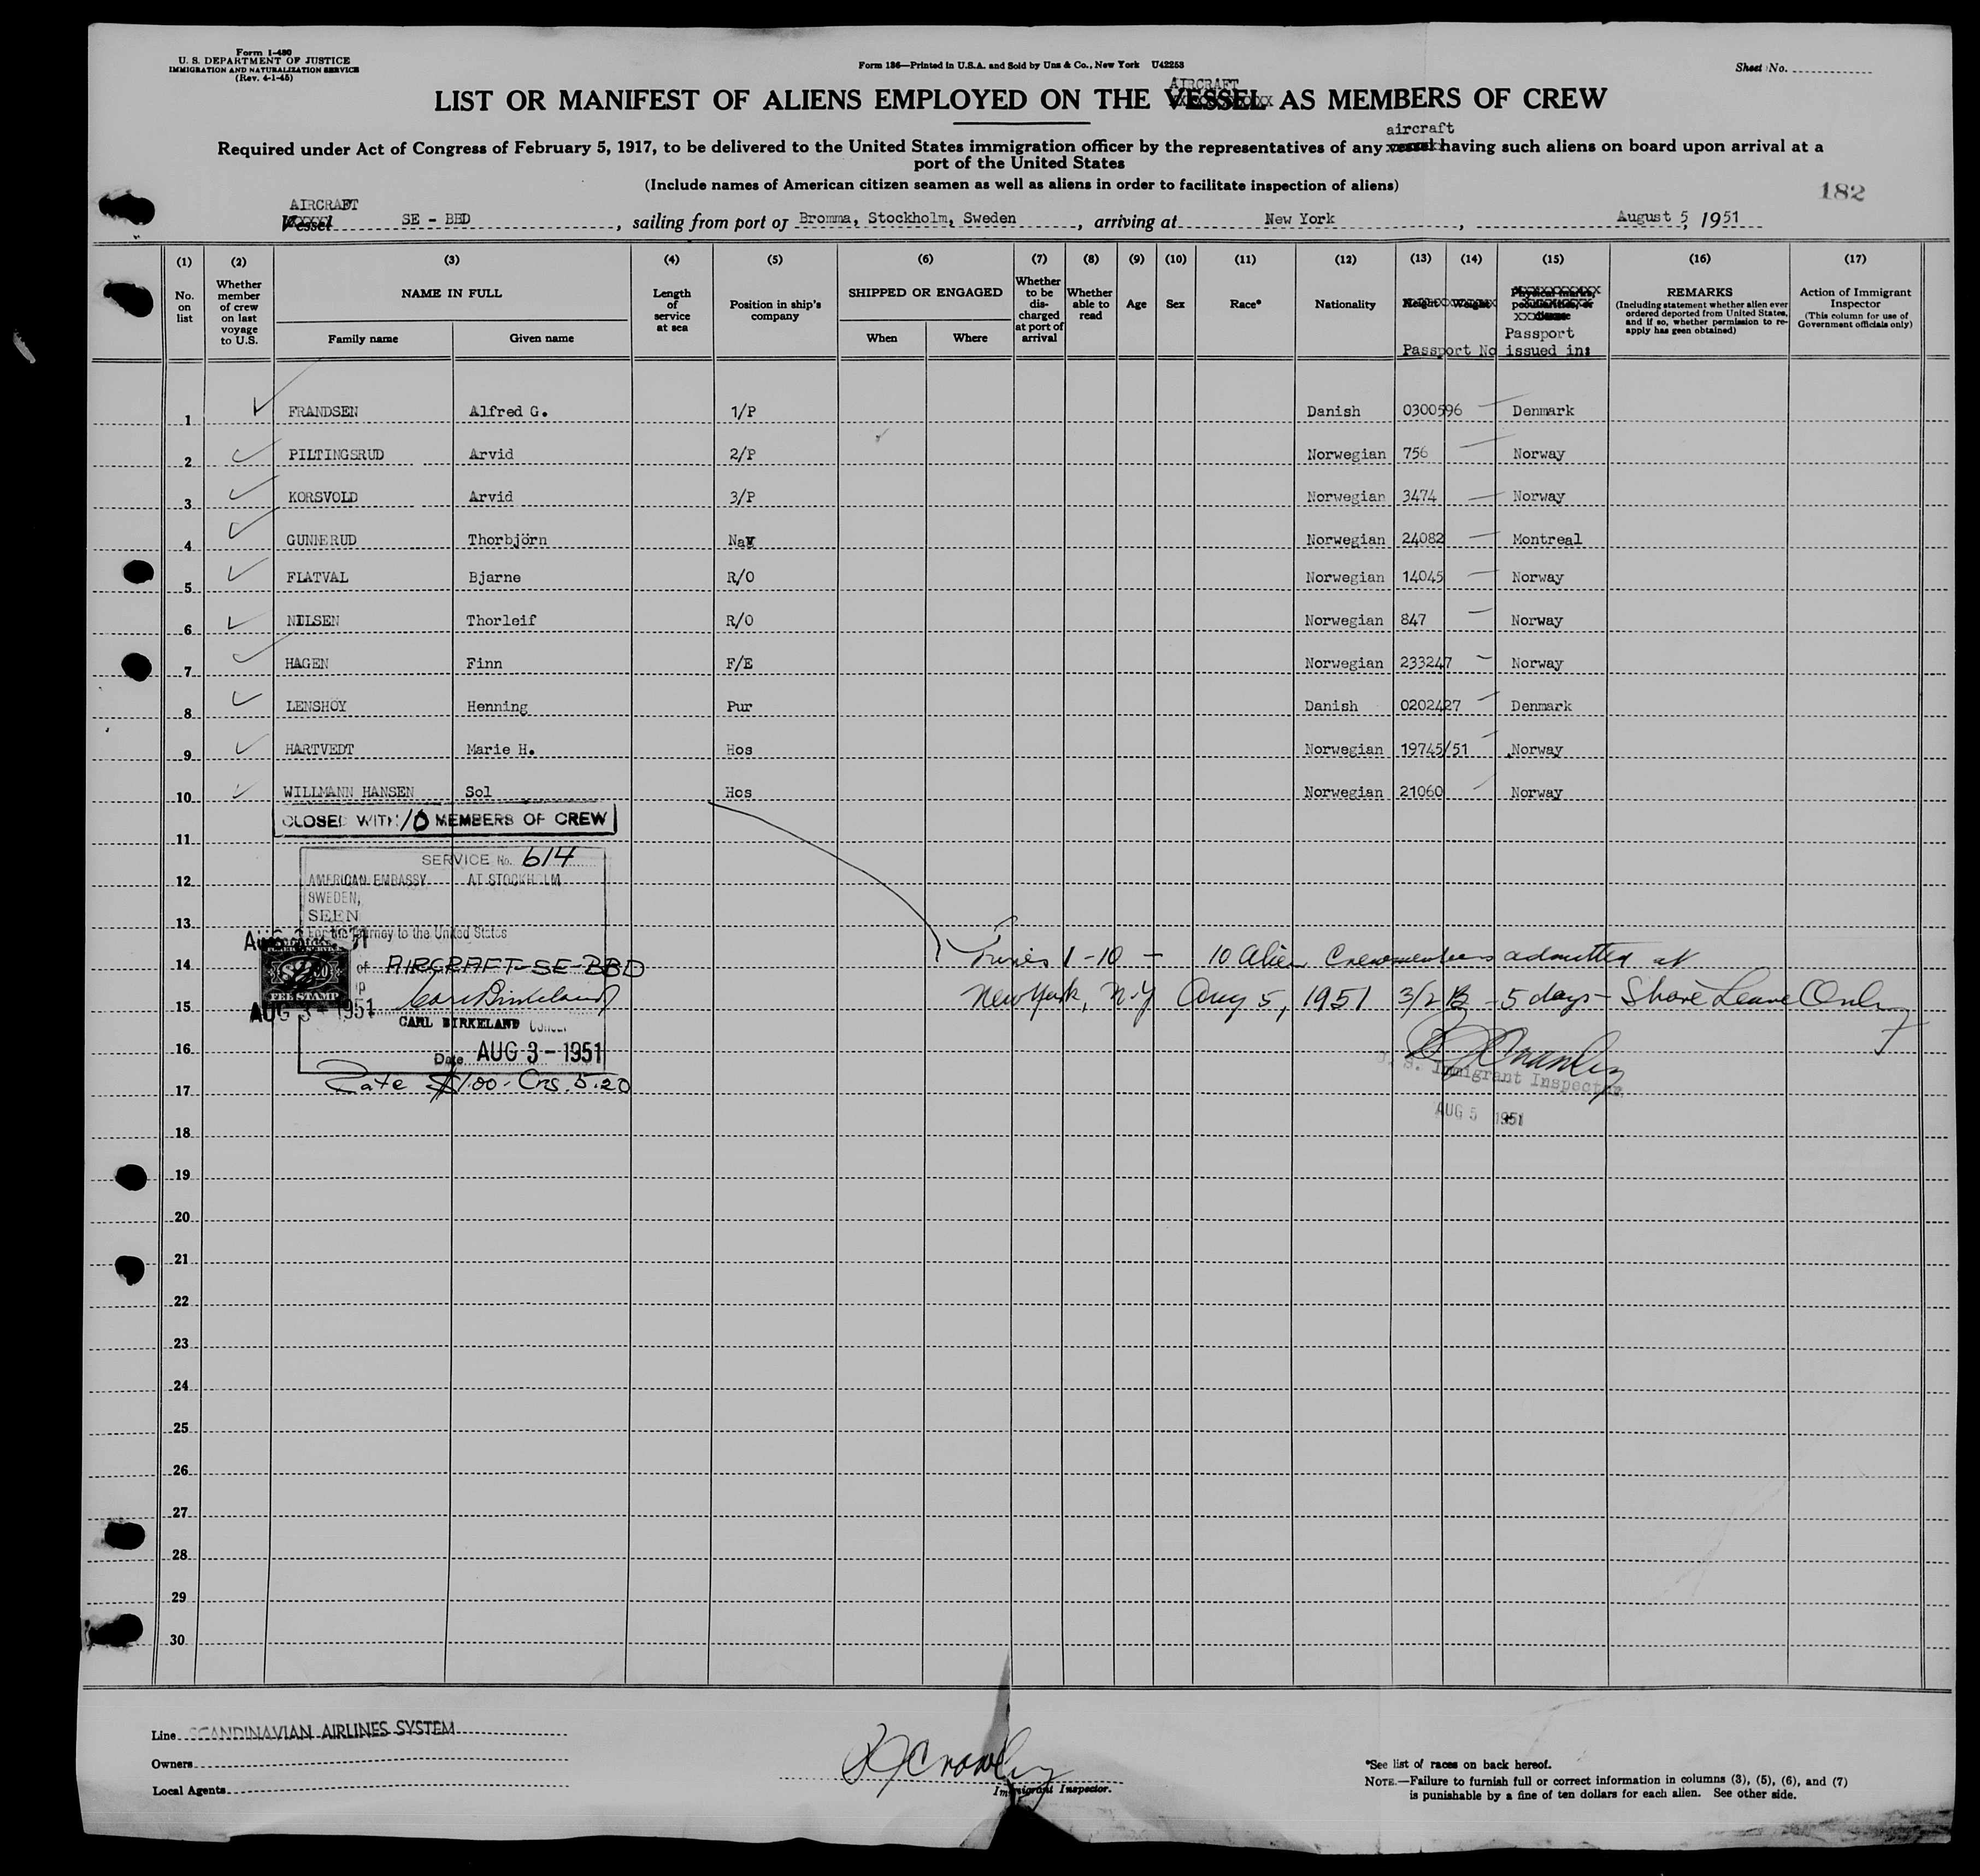 Form I-480
U. S. DEPARTMENT OF JUSTICE
IMMIGRATION AND NATURALIZATION SERVICE
(Rev. 4-1-45)
Form 136—Printed in U.S.A. and Sold by Unz & Co., New York U42253
Sheet No.
AIRCRAFT
LIST OR MANIFEST OF ALIENS EMPLOYED ON THE VESSEL AS MEMBERS OF CREW
aircraft
Required under Act of Congress of February 5, 1917, to be delivered to the United States immigration officer by the representatives of any vessel having such aliens on board upon arrival at a
port of the United States
(Include names of American citizen seamen as well as aliens in order to facilitate inspection of aliens)
182
AIRCRAFT
Vessel SE - BBD, sailing from port of Bromma, Stockholm, Sweden, arriving at New York, August 5, 1951
(1) (2) (3) (4) (5) (6) (7) (8) (9) (10) (11) (12) (13) (14) (15) (16) (17)
No. on list
Whether member of crew on last voyage to U.S.
NAME IN FULL
Family name
Given name
Length of service at sea
Position in ship's company
SHIPPED OR ENGAGED
When
Where
Whether to be discharged at port of arrival
Whether able to read
Age
Sex
Race*
Nationality
Height
Weight
Passport No
Physical marks, peculiarities, or disease
Passport issued in:
REMARKS
(Including statement whether alien ever ordered deported from United States, and if so, whether permission to reapply has been obtained)
Action of Immigrant Inspector
(This column for use of Government officials only)
1 FRANDSEN Alfred G. 1/P Danish 0300596 Denmark
2 PILTINGSRUD Arvid 2/P Norwegian 756 Norway
3 KORSVOLD Arvid 3/P Norwegian 3474 Norway
4 GUNNERUD Thorbjörn Nav Norwegian 24082 Montreal
5 FLATVAL Bjarne R/O Norwegian 14045 Norway
6 NILSEN Thorleif R/O Norwegian 847 Norway
7 HAGEN Finn F/E Norwegian 233247 Norway
8 LENSHOY Henning Pur Danish 0202427 Denmark
9 HARTVEDT Marie H. Hos Norwegian 19745/51 Norway
10 WILLMANN HANSEN Sol Hos Norwegian 21060 Norway
CLOSED WITH 10 MEMBERS OF CREW
11
SERVICE No. 614
12
AMERICAN EMBASSY AT STOCKHOLM
SWEDEN,
SEEN
13
For the Journey to the United States
AUG 3 1951
14
of AIRCRAFT-SE-BBD
$2.00
FEE STAMP
Lines 1-10 — 10 alien crewmembers admitted at
15
AUG 3 - 1951
Carl Birkeland
New York, N.Y Aug 5, 1951 3/2 B - 5 days - Shore Leave Only
CARL BIRKELAND Consul
16
Date AUG 3 - 1951
U. S. Immigrant Inspector
17
Rate $1.00 - Crs. 5.20
AUG 5 1951
18
19
20
21
22
23
24
25
26
27
28
29
30
Line SCANDINAVIAN AIRLINES SYSTEM
Owners
Local Agents
Immigrant Inspector.
*See list of races on back hereof.
NOTE.—Failure to furnish full or correct information in columns (3), (5), (6), and (7)
is punishable by a fine of ten dollars for each alien. See other side.